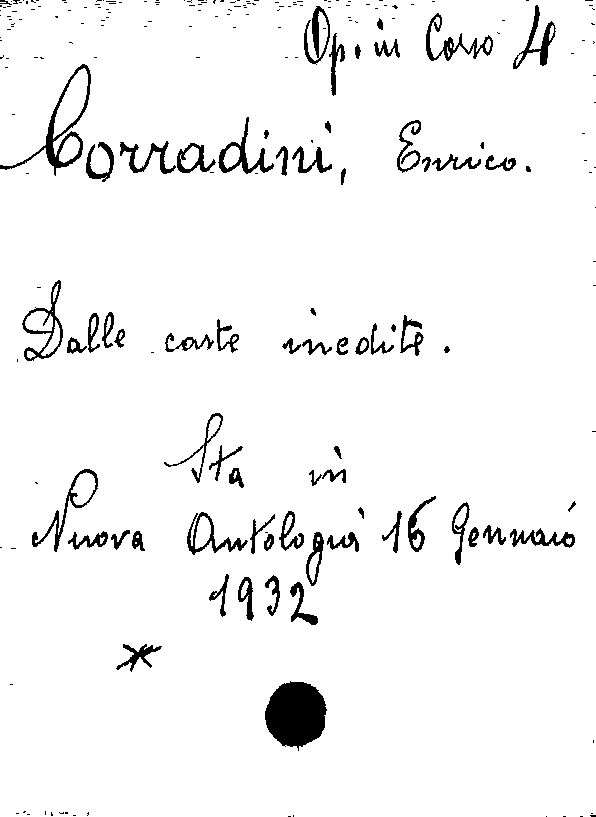 Op. in Corso 4
Corradini, Enrico.
Dalle carte inedite.
Sta in
Nuova Antologia 16 Gennaio
1932
*